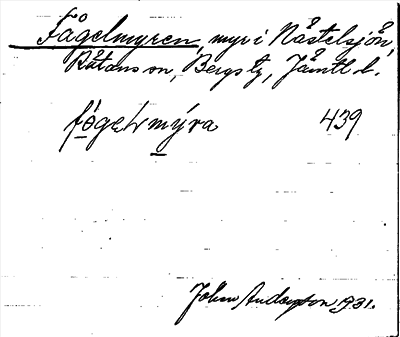 Fågelmyren, myr i Nåstelsjön,
Råtans sn, Bergs tg, Jämtl. l.
fógelmýra 439
John Anderzon 1931.